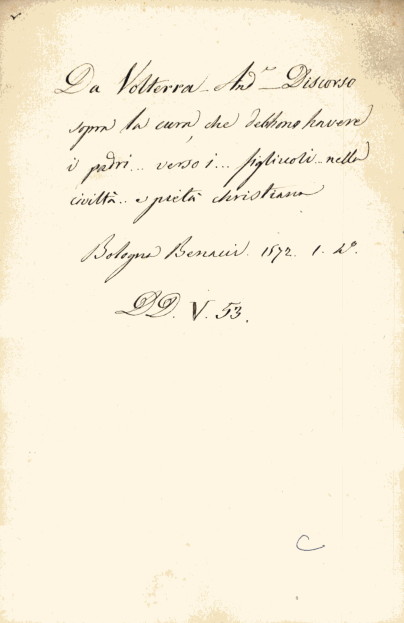 Da Volterra - And.ᵃ - Discorso
sopra la cura, che debbono havere
i padri... verso i... figliuoli - nella
civiltà.. e pietà christiana
Bologna Benacci. 1572. 1. 4º.
DD. V. 53.
C